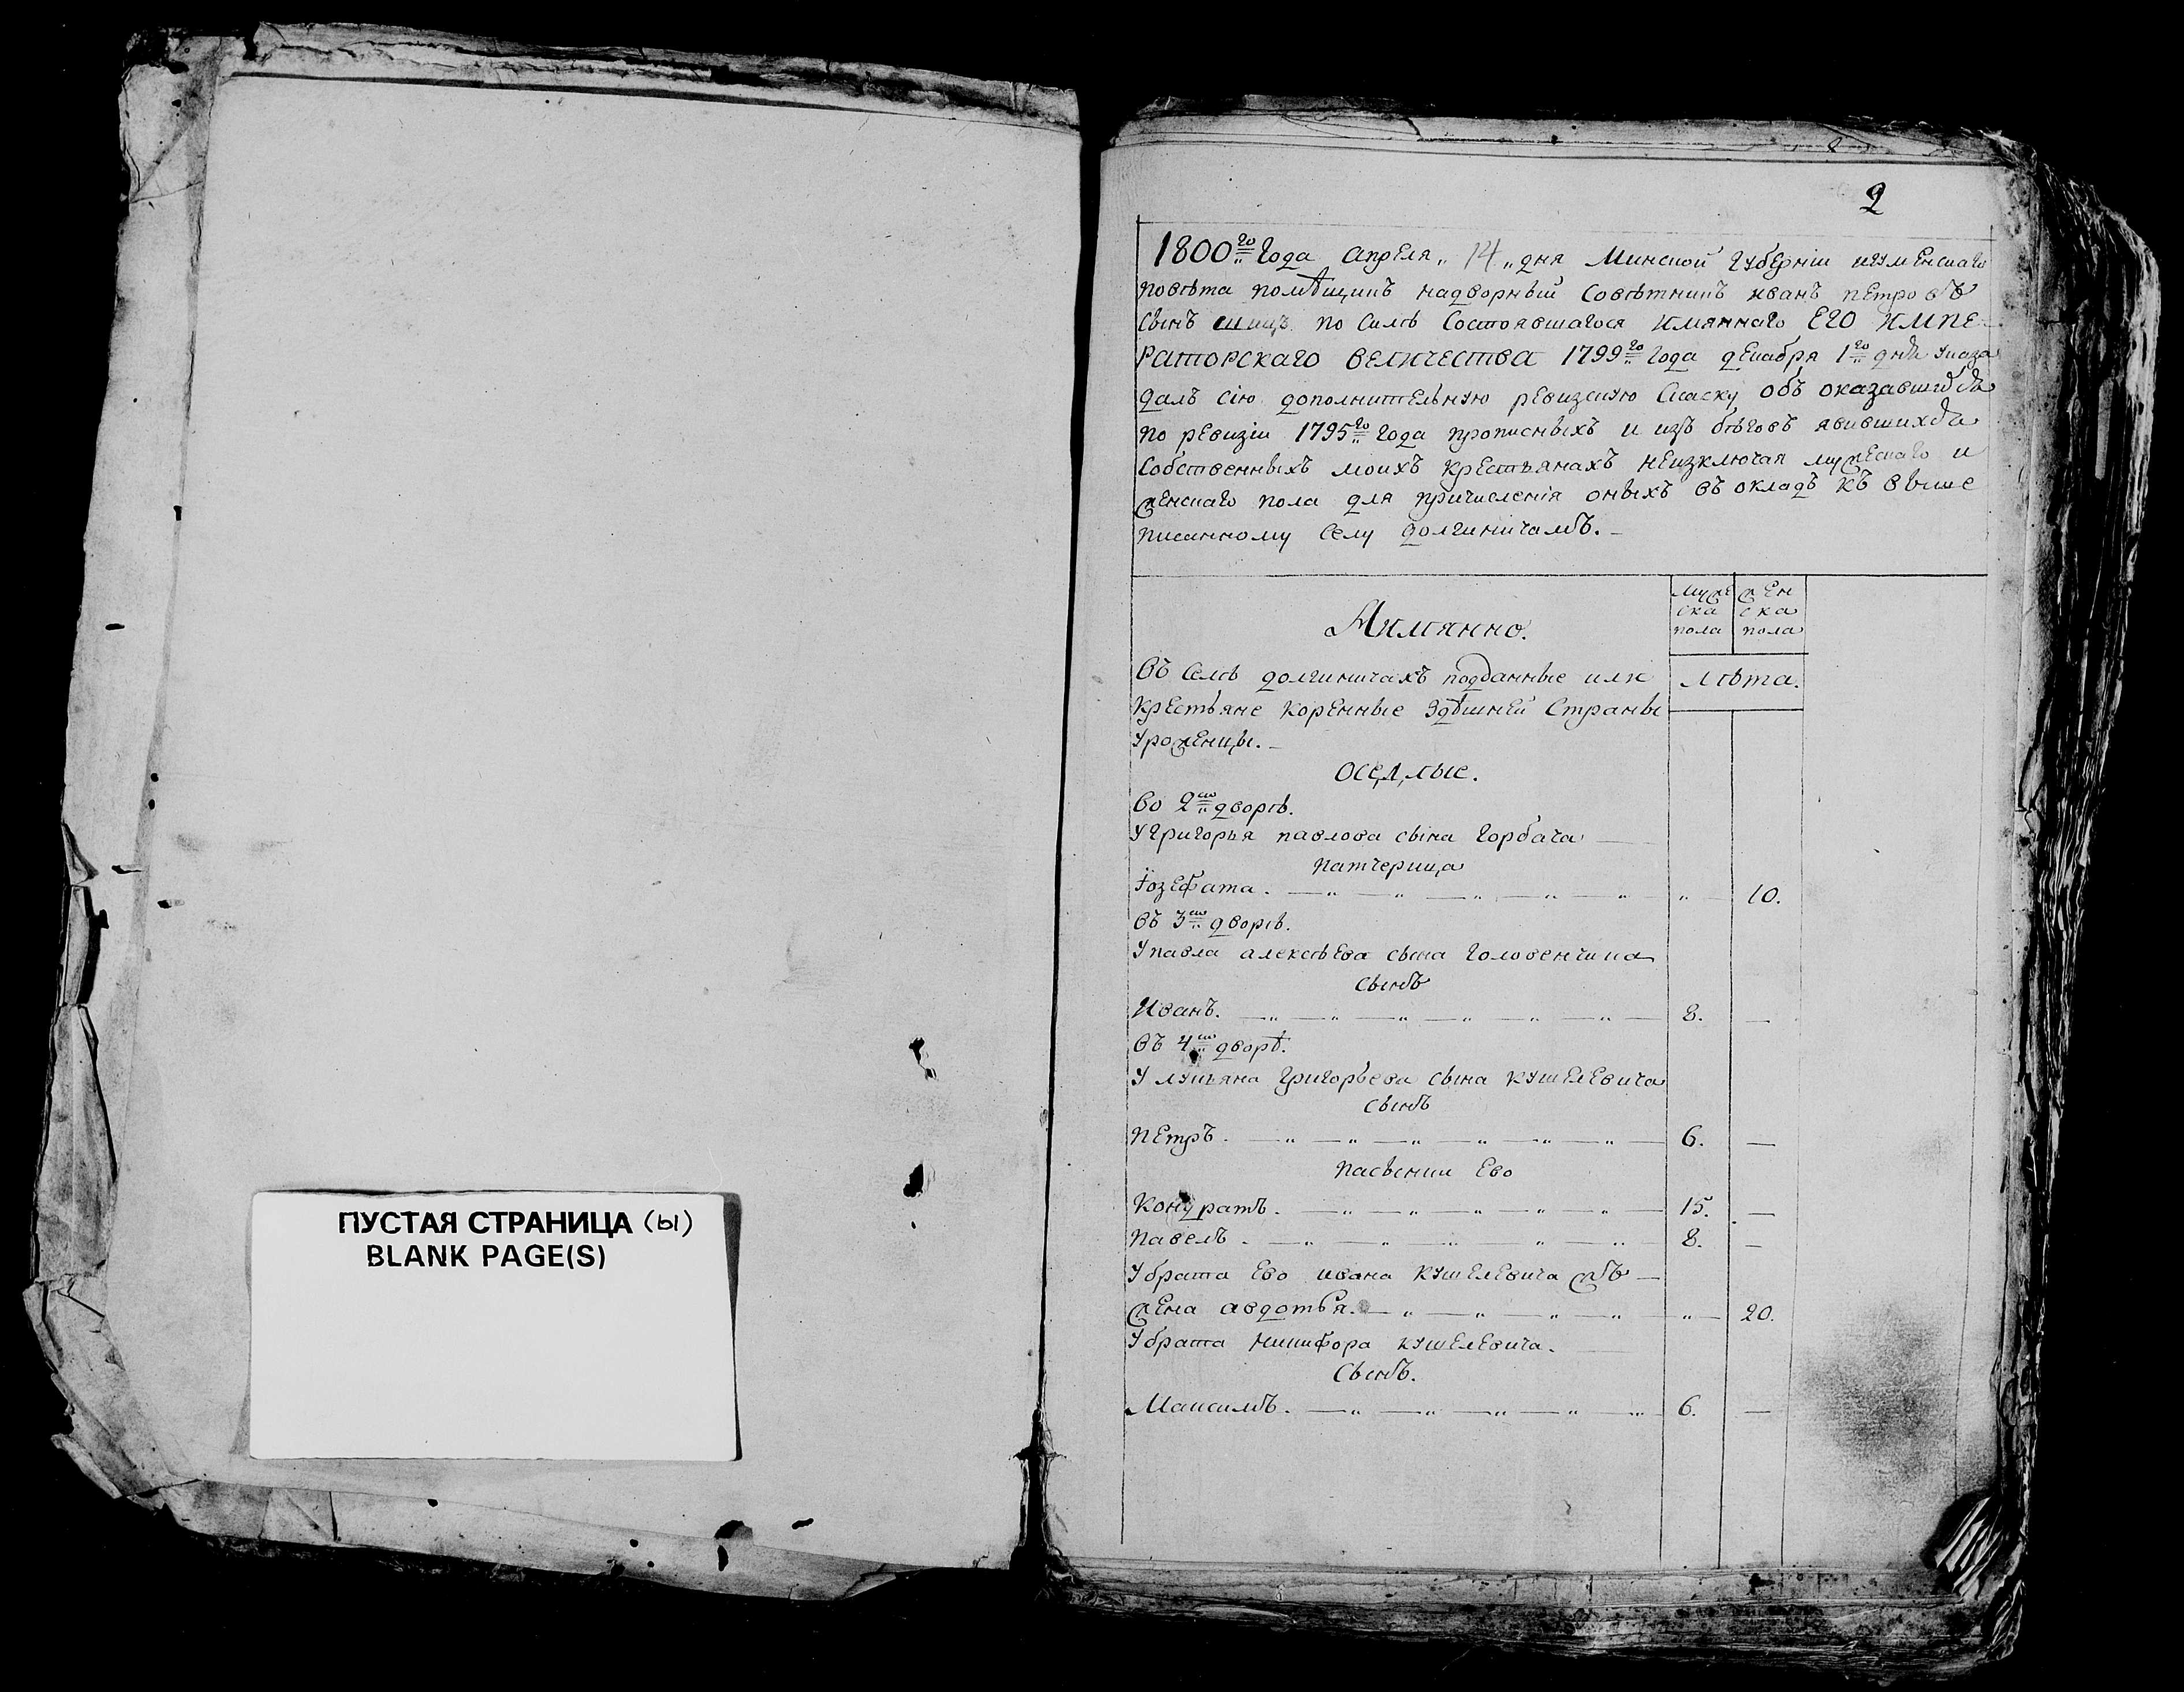 2
1800го Года Апреля „14„ дня Минской Губернiи игуменскаго
повѣта помѣщикъ надворный Совѣтникъ иванъ петровъ
сынъ по Силѣ Состоявшагося имяннаго ЕГО ИМПЕ-
РАТОРСКАГО ВЕЛИЧЕСТВА 1799го Года декабря 1го дня указа
далъ сiю дополнительную ревизскую Скаску объ оказавшихся
по ревизiи 1795го Года прописныхъ и изъ бѣговъ явившихся
Собственныхъ моихъ крестьянахъ неизключая мужескаго и
женскаго пола для причисленiя оныхъ въ окладъ къ выше
писанному Селу Долгиничамъ.
Аимянно.
Муже
ска
пола
жен
ска
пола
Въ Селѣ Долгиничахъ подданные или
Лѣта.
Крестьяне Коренные Здѣшней Страны
Уроженцы.
Осѣдлые.
Во 2мъ дворѣ.
У Григорья павлова сына Горбача
патчерица
Iозефата. 10.
Въ 3мъ дворѣ.
У павла алексѣева сына Головенчика
сынъ
Иванъ. 8. —
Въ 4мъ дворѣ.
У лукьяна Григорьева сына кушелевича
сынъ
петръ. 6. —
пасынки Ево
Кондратъ. 15. —
павелъ. 8. —
У брата Ево ивана Кушелевича
жена авдотья. 20.
У брата никифора кушелевича.
Сынъ.
Максимъ. 6. —
ПУСТАЯ СТРАНИЦА (Ы)
BLANK PAGE(S)